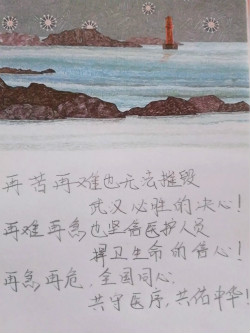 再苦再难也无法摧毁
武汉必胜的决心！
再难再急也坚信医护人员
捍卫生命的信心！
再急再危，全国同心，
共守医序，共佑中华！